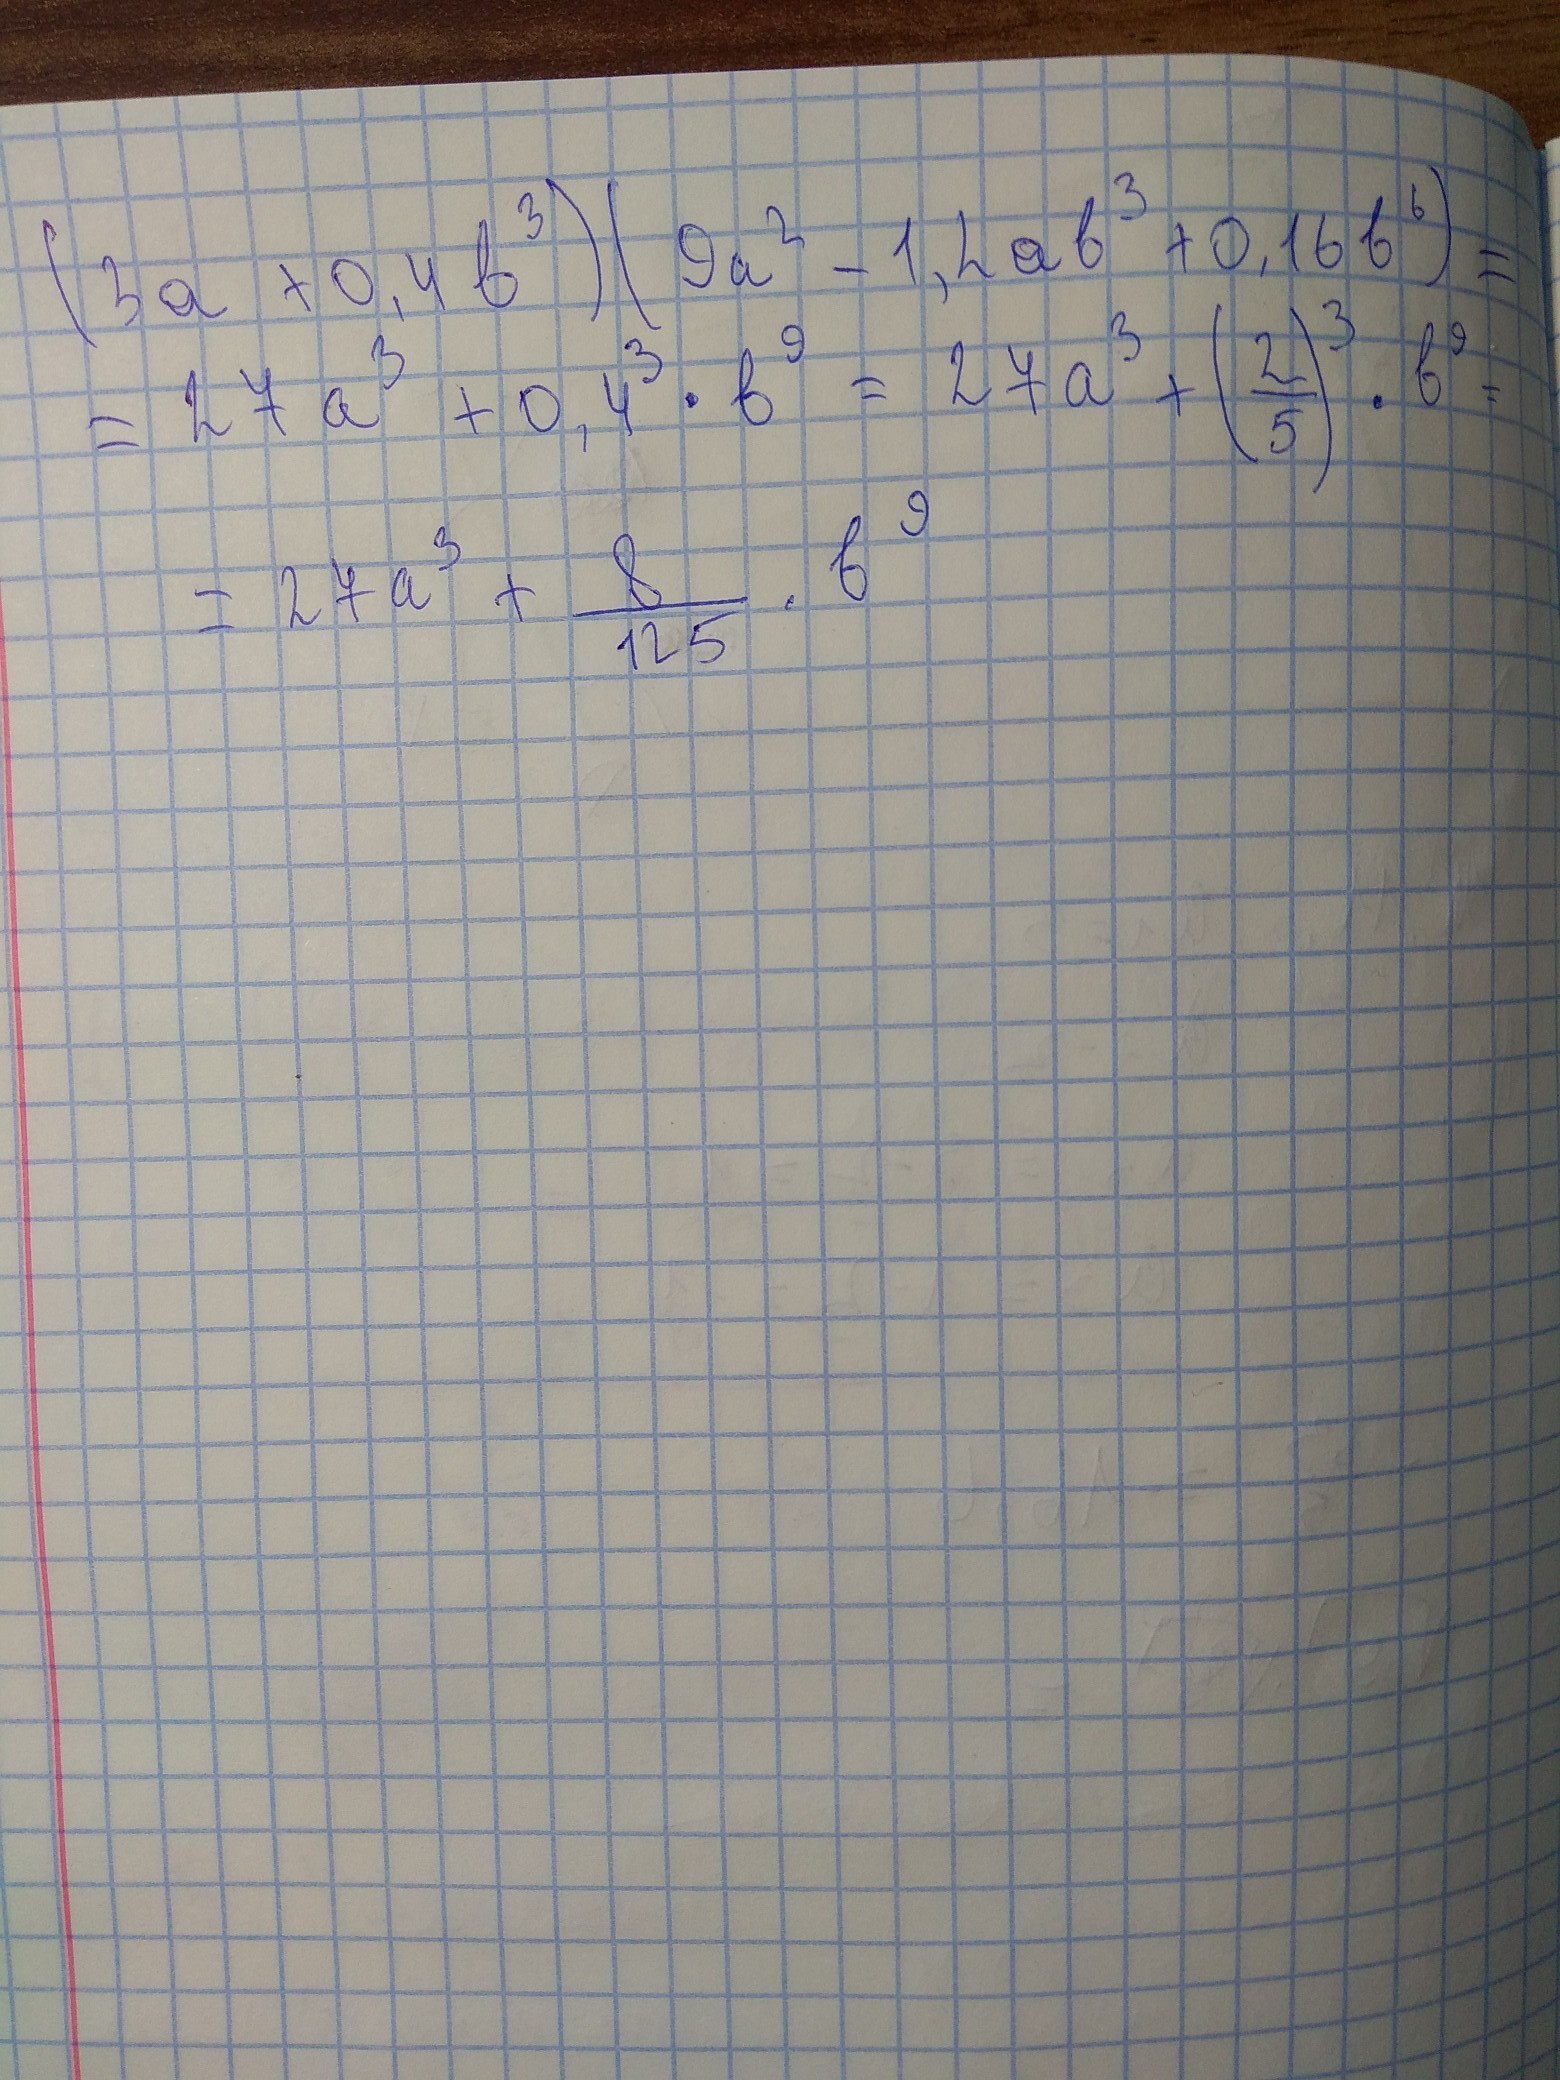 (3a + 0,4b³)(9a² - 1,2ab³ + 0,16b⁶) =
= 27a³ + 0,4³ · b⁹ = 27a³ + (2/5)³ · b⁹ =
= 27a³ + 8/125 · b⁹